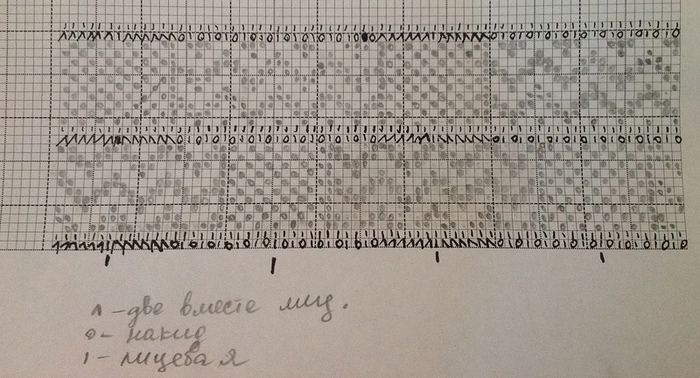 ʌ - две вместе лиц.
o - накид
ı - лицевая